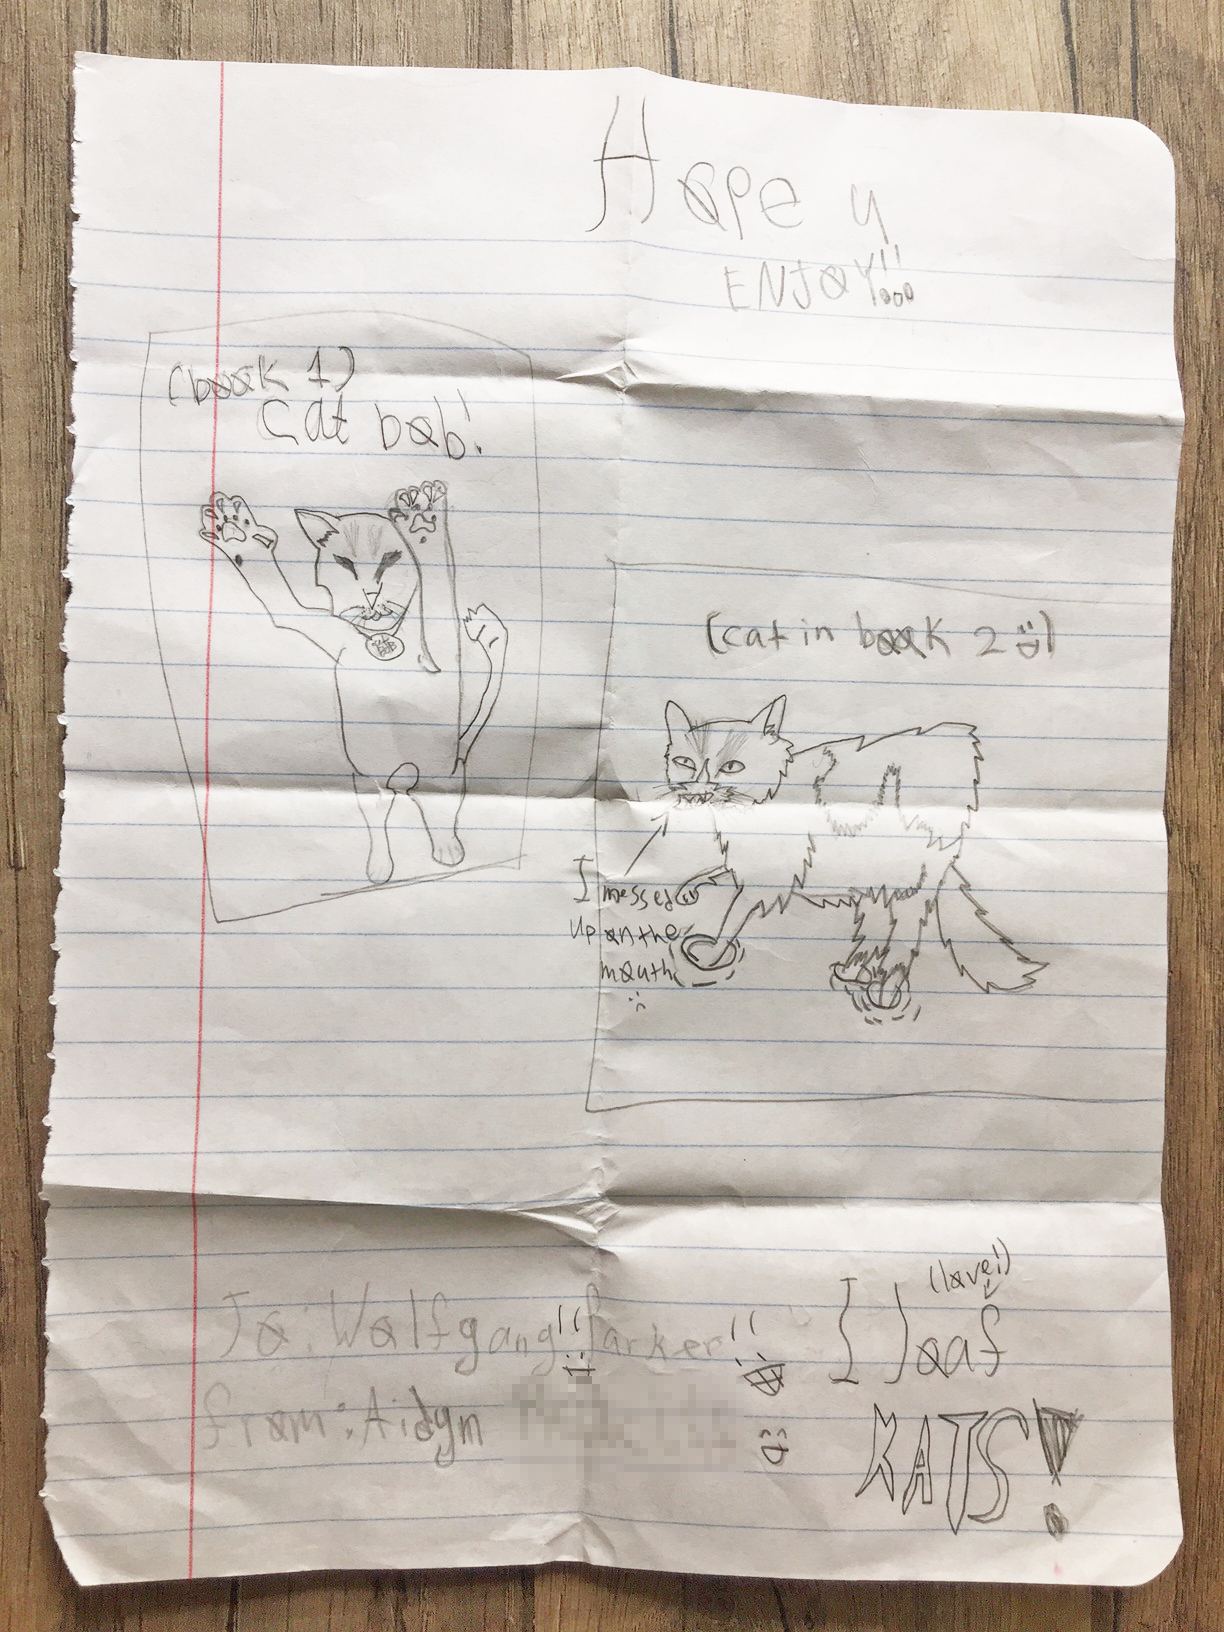 Hope y
ENJOY!!!
(book 1)
Cat bob!
(cat in book 2 :))
I messed
up on the
mouth
:(
To: Wolfgang!! Parker!!
from: Aidyn
(love!)
I loaf
KATS!